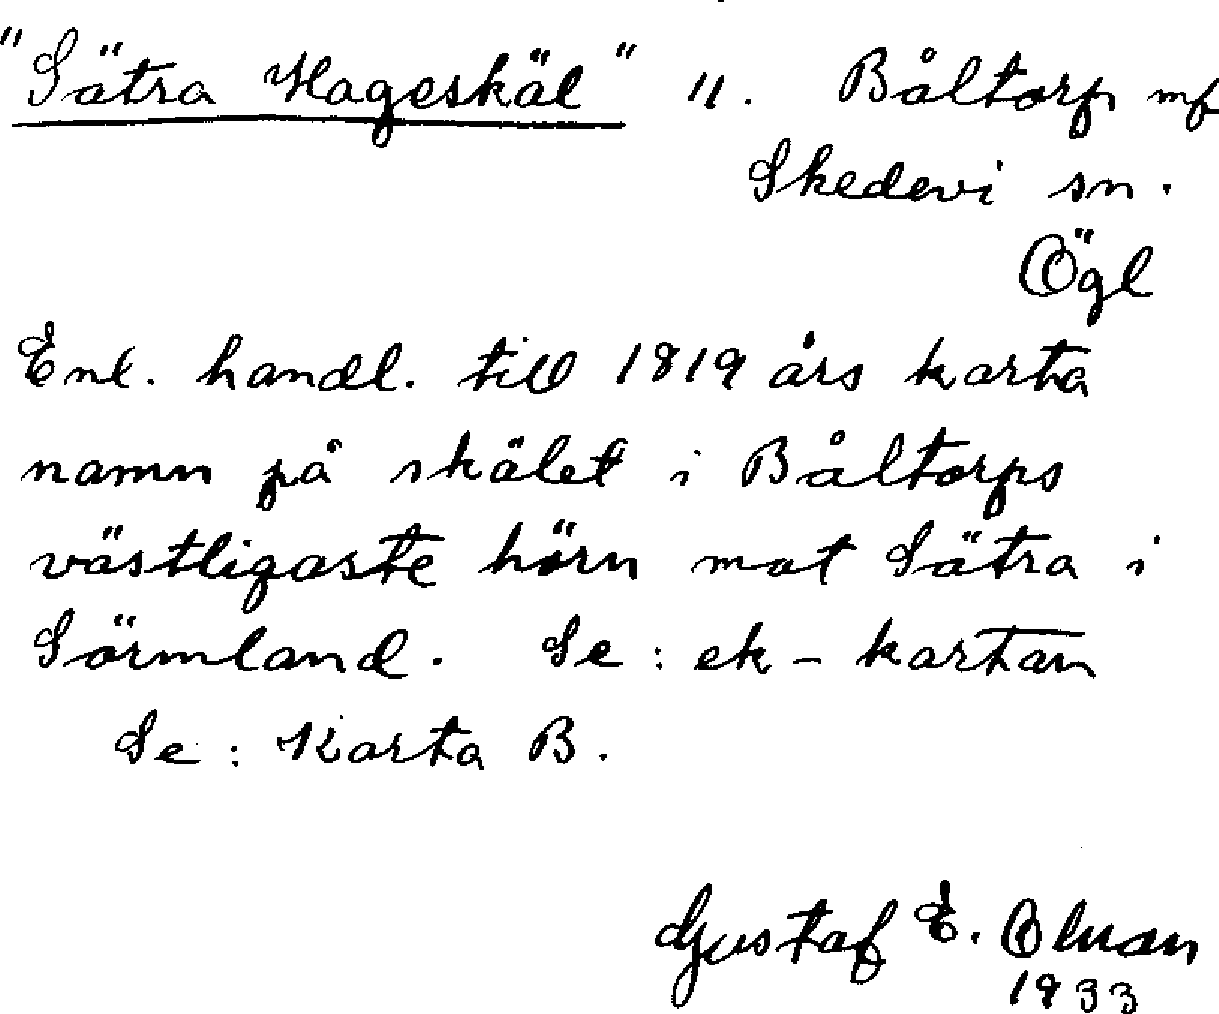 "Sätra Hageskäl" 11. Båltorp mf
Skedevi sn.
Ögl
Enl. handl. till 1819 års karta
namn på skälet i Båltorps
västligaste hörn mot Sätra i
Sörmland. Se: ek-kartan
Se: Karta B.
Gustaf E.
1933